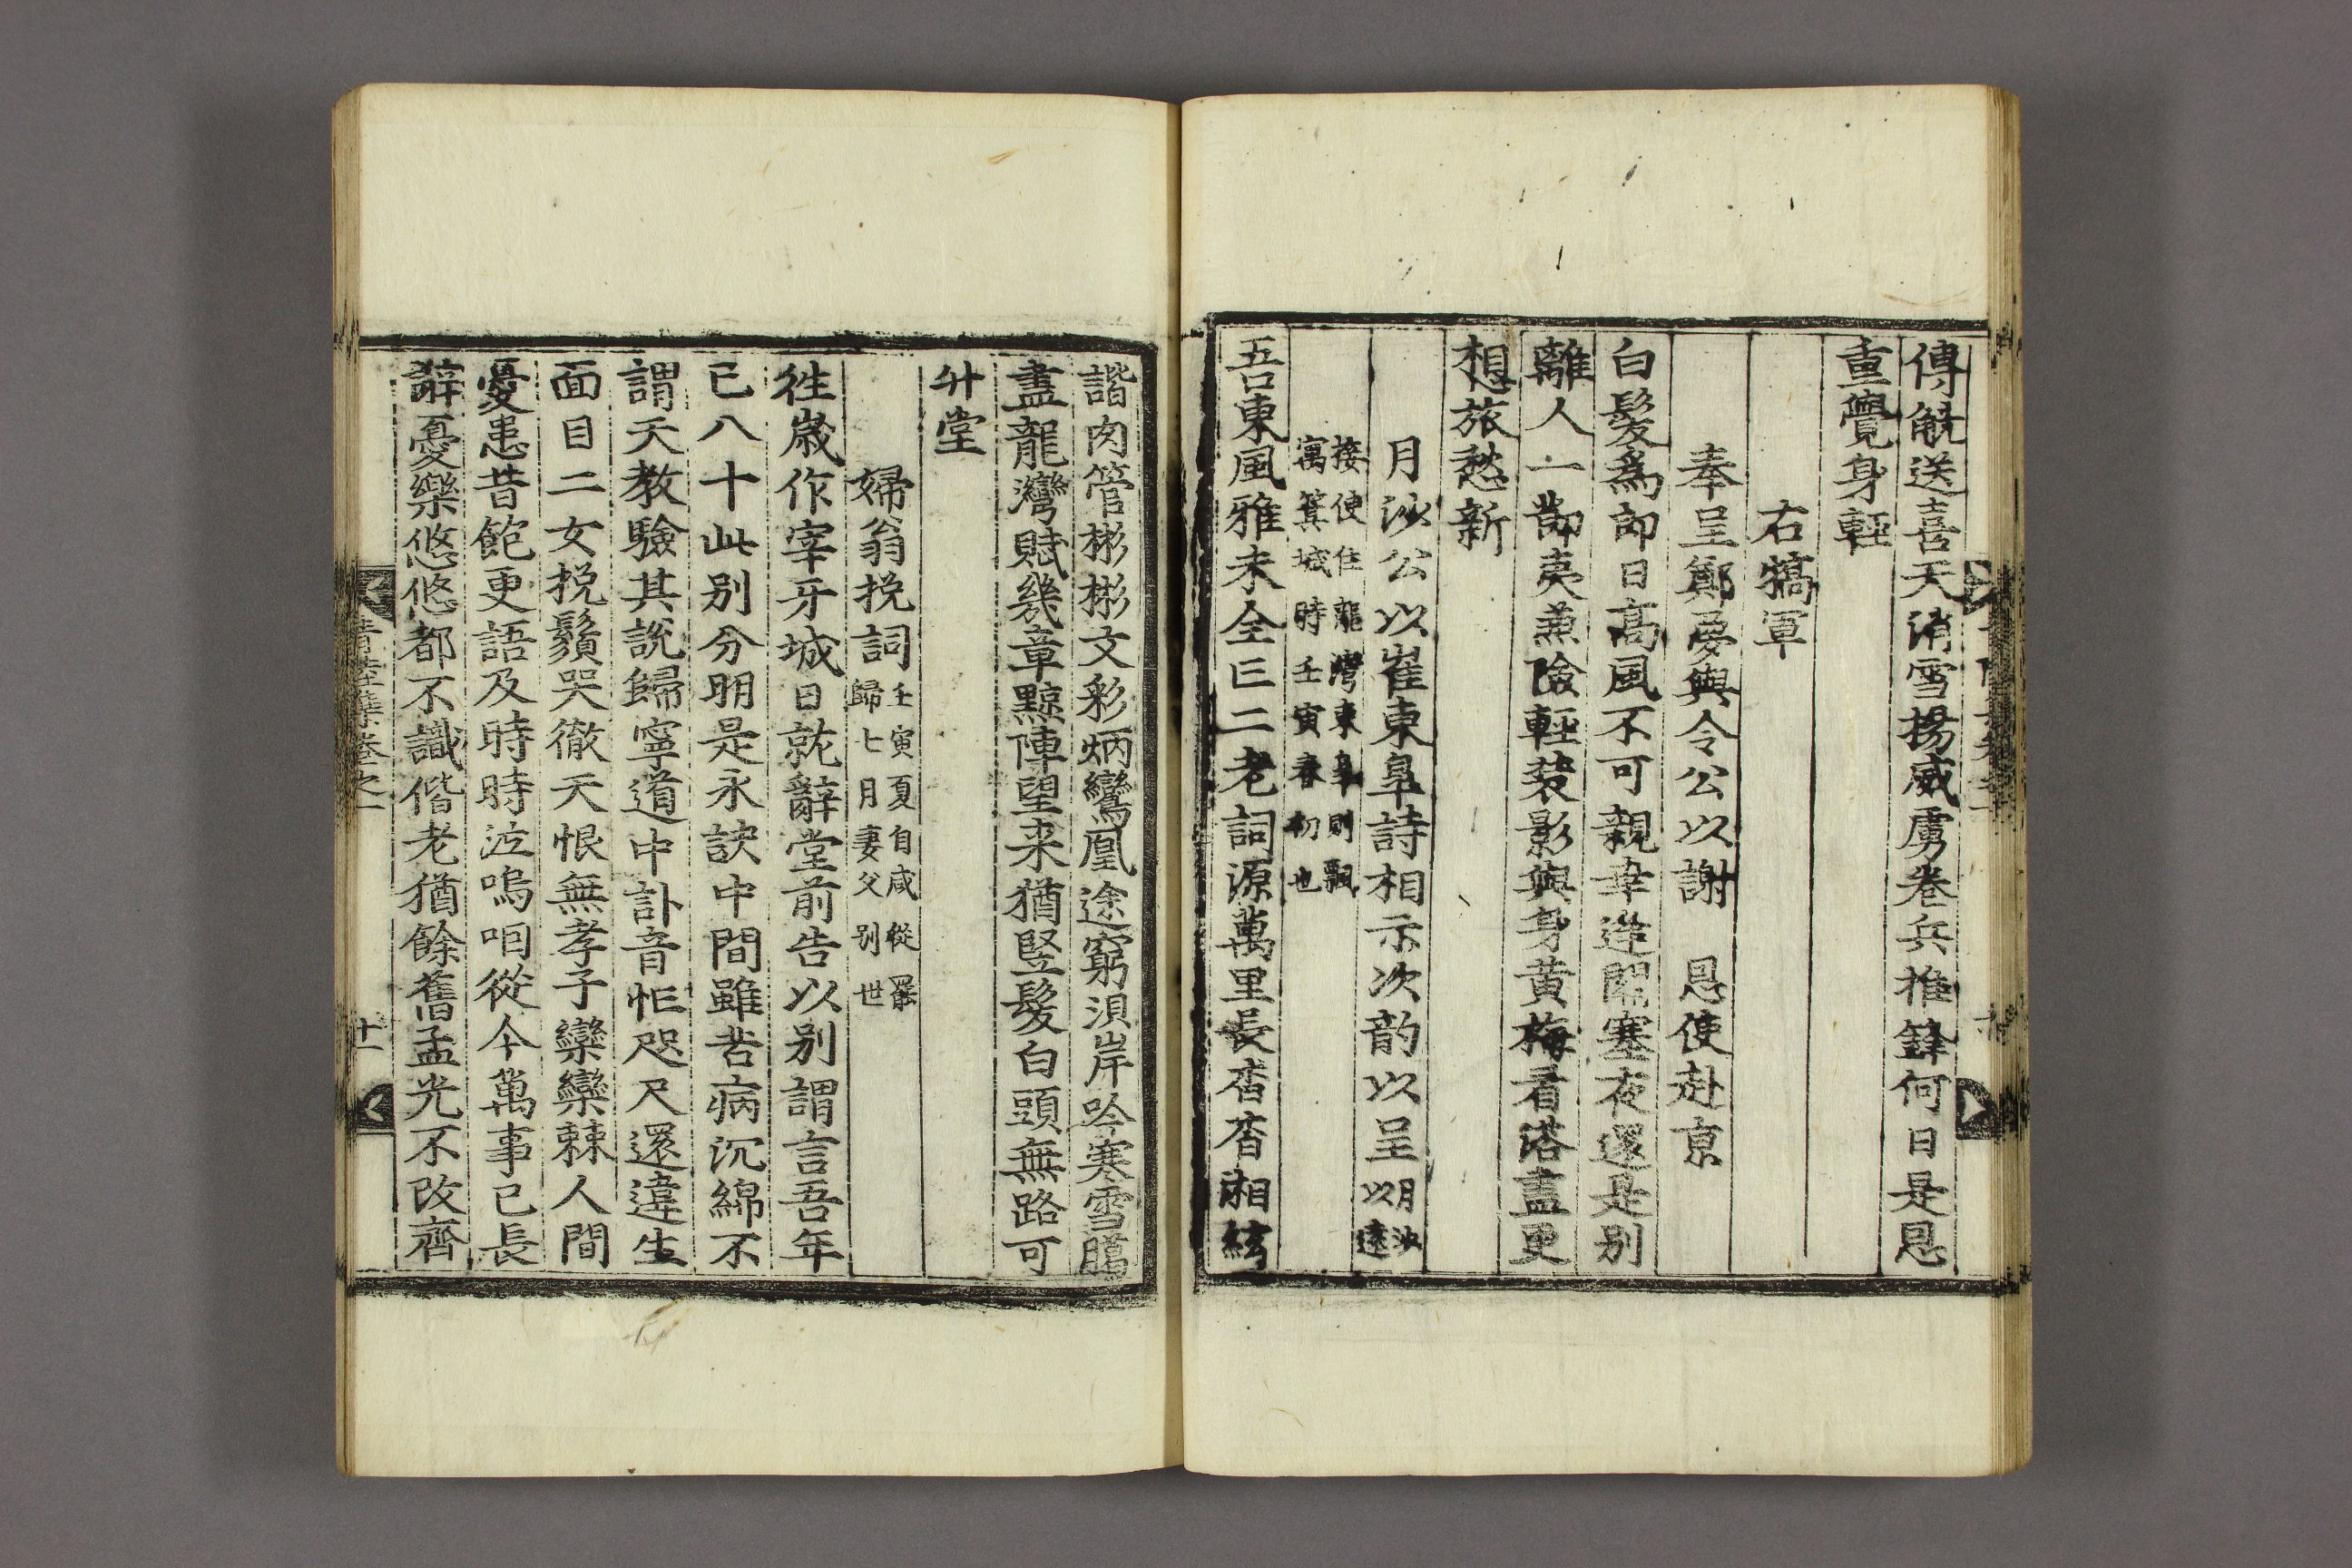 傳觥送喜天消雪揚威虜卷兵摧鋒何日是恩
重覺身輕
右犒軍
奉呈鄭夢與令公以謝 恩使赴京
白髮爲郎日高風不可親聿造關塞夜還是別
離人一節夷兼險輕裝影與身黃梅看落盡更
想旅愁新
月沙公以崔東皐詩相示次韵以呈月沙以遠
接使住龍灣東皐則飄
寓箕城時壬寅春初也
吾東風雅未全亡二老詞源萬里長杳杳湘絃
諧肉管彬彬文彩炳鸞凰途窮浿岸吟寒雪膓
盡龍灣賦幾章黥陣望来猶竪髮白頭無路可
升堂
婦翁挽詞壬寅夏自咸從罷
歸七月妻父別世
徃歲作宰牙城日就辭堂前告以別謂言吾年
已八十此別分明是永訣中間雖苦病沉綿不
謂天教驗其說歸寧道中訃音怛咫尺還違生
面目二女挽鬚哭徹天恨無孝子欒欒棘人間
憂患昔飽更語及時時泣嗚咽從今萬事已長
辭憂樂悠悠都不識偕老猶餘舊孟光不改齊
青陸集卷之一
十一